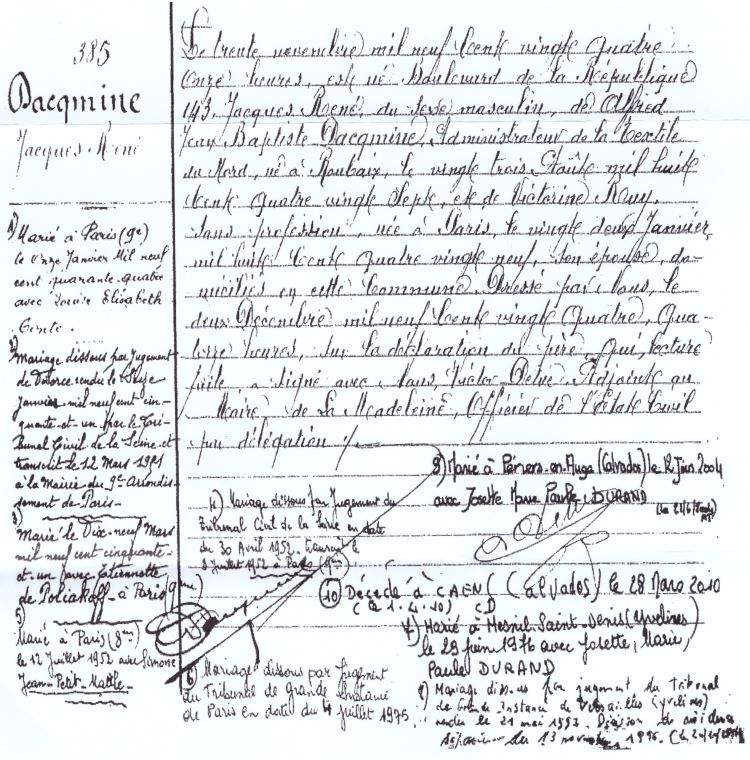 385
Dacqmine
Jacques René
Le trente novembre mil neuf cent vingt quatre
onze heures, est né Boulevard de la République
143, Jacques René, du sexe masculin, de Alfred
Jean Baptiste Dacqmine, Administrateur de la Textile
du Nord, né à Roubaix, le vingt trois Août mil huit
cent quatre vingt sept, et de Victorine Ruy,
sans profession, née à Paris, le vingt deux Janvier
mil huit cent quatre vingt neuf, son épouse, do-
miciliés en cette Commune. Dressé par Nous, le
deux Décembre mil neuf cent vingt quatre, qua-
torze heures, sur la déclaration du père, qui, lecture
faite, a signé avec Nous, Victor Adjoint au
Maire de La Madeleine, Officier de l'Etat Civil
par délégation
1) Marié à Paris (9e)
le onze Janvier Mil neuf
cent quarante-quatre
avec Louise Elisabeth
Conte.
2) Mariage dissous par Jugement
de Divorce rendu le Seize
janvier mil neuf cent cin-
quante et un par le Tri-
bunal Civil de la Seine et
transcrit le 12 Mars 1951
à la Mairie du 9e Arrondis-
sement de Paris.
3)
Marié le Dix-neuf Mars
mil neuf cent cinquante-
et-un avec
de Poliakoff à Paris
4) Mariage dissous par Jugement du
Tribunal Civil de la Seine en date
du 30 Avril 1952. transcrit le
8 Juillet 1952 à Paris
5)
Marié à Paris (8me)
le 12 Juillet 1952 avec Simone
Jeann Petit-Mattle.
6) Mariage dissous par Jugement
du Tribunal de grande instance
de Paris en date du 4 juillet 1975
7) Marié à Mesnil-Saint-Denis (Yvelines)
le 29 juin 1976 avec Josette, Marie,
Paule DURAND
8) Mariage dissous par jugement du Tribunal
de Grande Instance de Versailles (Yvelines)
rendu le 21 mai 1993. Décision de
du 13 novembre 1996.
9) Marié à Périers-en-Auge (Calvados) le 12 Juin 2004
avec Josette Marie Paule DURAND
10) Décédé à CAEN (Calvados) le 28 Mars 2010
(le 1.4.10) CD